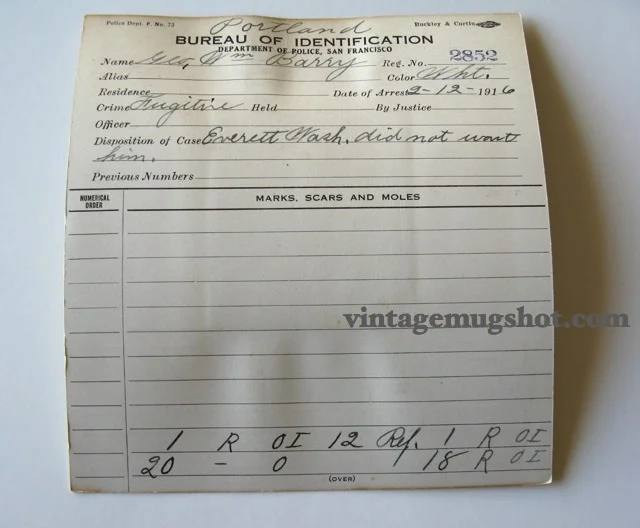 Police Dept. F. No. 73 Portland Buckley & Curtin
BUREAU OF IDENTIFICATION
DEPARTMENT OF POLICE, SAN FRANCISCO
Name Geo, Wm Barry Reg. No. 2852
Alias Color Wht.
Residence Date of Arrest 2-12-1916
Crime Fugitive Held By Justice
Officer
Disposition of Case Everett Wash. did not want
him.
Previous Numbers
NUMERICAL ORDER MARKS, SCARS AND MOLES
vintagemugshot.com
1 R OI 12 Ref. 1 R OI
20 - O 1 18 R OI
(OVER)